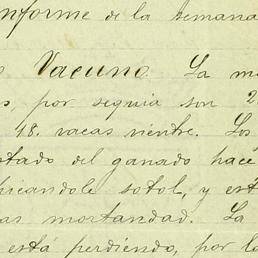 informe de la semana
o Vacuno. La m
s, por sequia son 2
18. vacas vientre. Los
stado del ganado hace
picandole sotol, y est
as mortandad. La
está perdiendo, por la